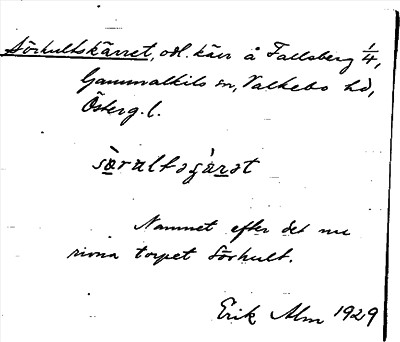 Sörhultskärret, odl. kärr å Fallsberg 1/4,
Gammalkils sn, Valkebo hd,
Österg. l.
sòrultsɡárət
Namnet efter det nu
rivna torpet Sörhult.
Erik Alm 1929